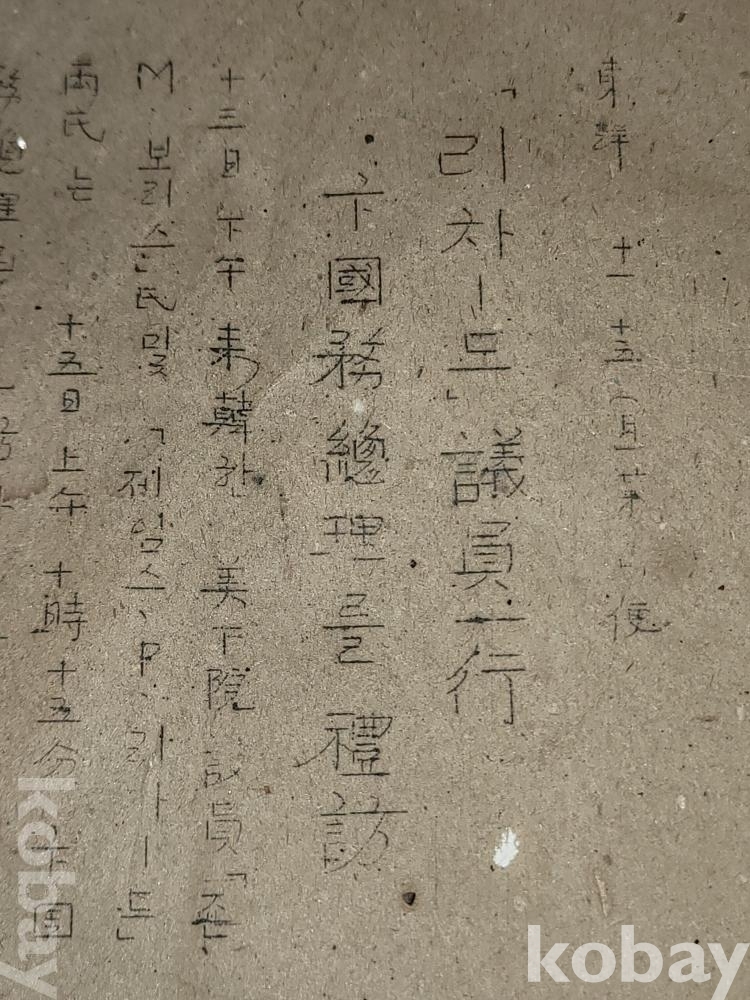 東洋 十一 十五 (月) 第 便
「리차ー드」議員一行
卞國務總理를 禮訪
十三日下午 来韓한 美下院 議員「죤
M·보리슨」氏 및 「제임스、P·리차ー드」
兩氏는 十五日 上午 十時十五分 卞國
務總理를
kobay
kobay